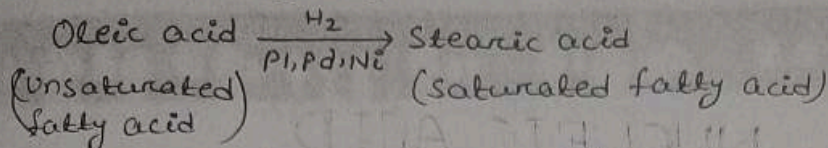 Oleic acid H2 → Stearic acid
Pl, Pd, Ni
(Unsaturated fatty acid) (Saturated fatty acid)